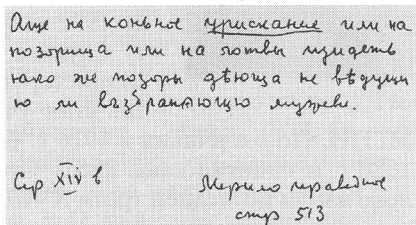 Аще на коньное урискание или на
позорища или на ловы изидеть
како же позоры дѣюща не вѣдущи
ю ли възбраняющю мужеви.
Сер XIV в
Мерило праведное
стр 513